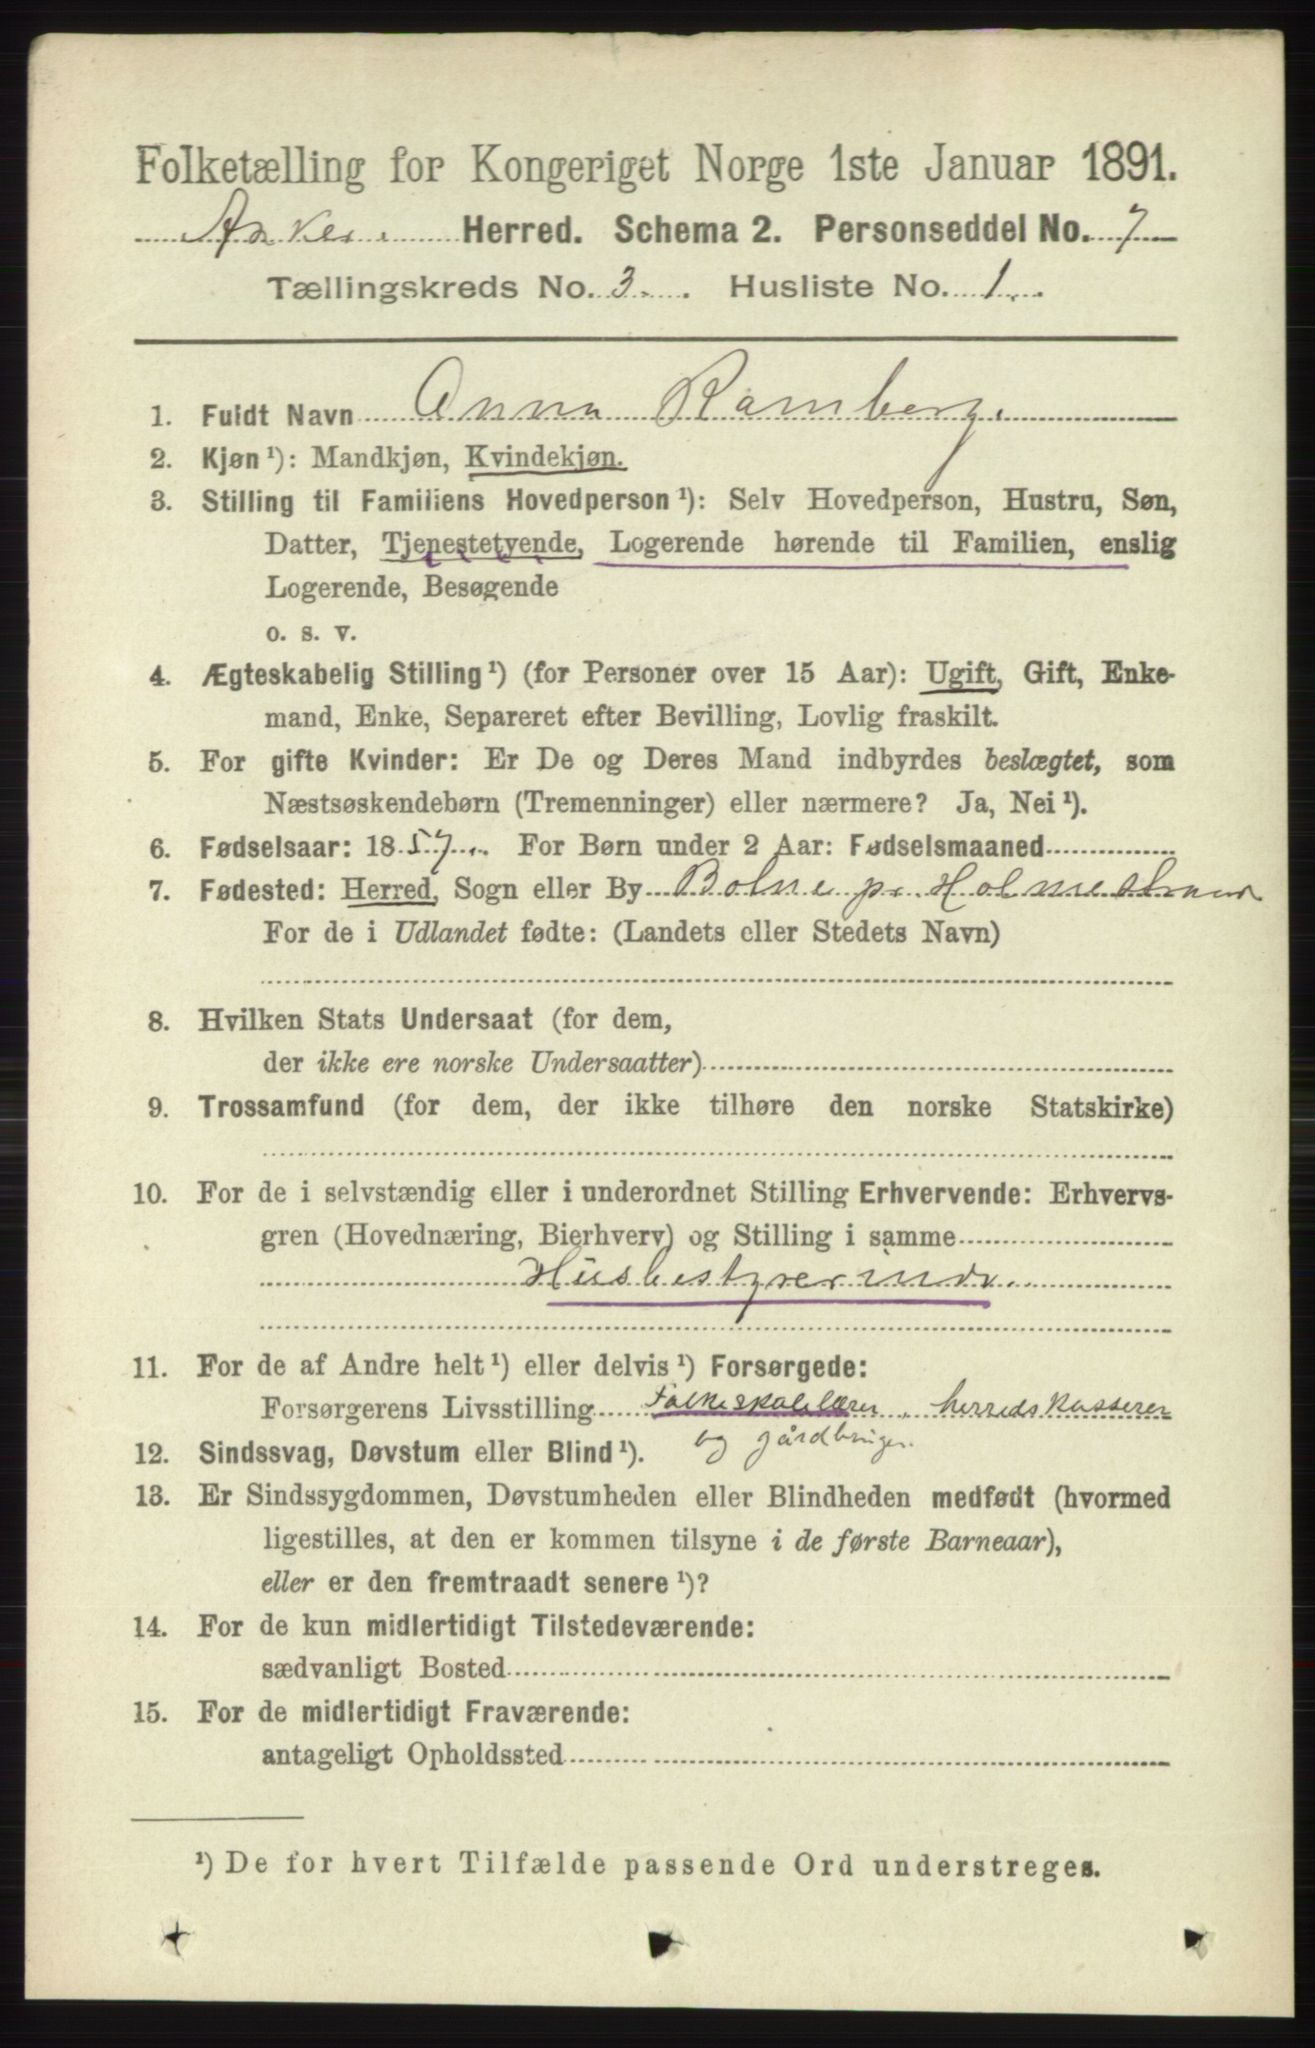 Folketælling for Kongeriget Norge 1ste Januar 1891.
Herred. Schema 2. Personseddel No. 7
Tællingskreds No. 3. Husliste No. 1.
1. Fuldt Navn Anna Ramberg.
2. Kjøn ¹): Mandkjøn, Kvindekjøn.
3. Stilling til Familiens Hovedperson ¹): Selv Hovedperson, Hustru, Søn,
Datter, Tjenestetyende, Logerende hørende til Familien, enslig
Logerende, Besøgende
o. s. v.
4. Ægteskabelig Stilling ¹) (for Personer over 15 Aar): Ugift, Gift, Enke-
mand, Enke, Separeret efter Bevilling, Lovlig fraskilt.
5. For gifte Kvinder: Er De og Deres Mand indbyrdes beslægtet, som
Næstsøskendebørn (Tremenninger) eller nærmere? Ja, Nei ¹).
6. Fødselsaar: 1857. For Børn under 2 Aar: Fødselsmaaned
7. Fødested: Herred, Sogn eller By Botne pr. Holmestrand
For de i Udlandet fødte: (Landets eller Stedets Navn)
8. Hvilken Stats Undersaat (for dem,
der ikke ere norske Undersaatter)
9. Trossamfund (for dem, der ikke tilhøre den norske Statskirke)
10. For de i selvstændig eller i underordnet Stilling Erhvervende: Erhvervs-
gren (Hovednæring, Bierhverv) og Stilling i samme
Husbestyrerinde.
11. For de af Andre helt ¹) eller delvis ¹) Forsørgede:
Forsørgerens Livsstilling Folkeskolelærer, herredskasserer
og gårdbruger.
12. Sindssvag, Døvstum eller Blind ¹).
13. Er Sindssygdommen, Døvstumheden eller Blindheden medfødt (hvormed
ligestilles, at den er kommen tilsyne i de første Barneaar),
eller er den fremtraadt senere ¹)?
14. For de kun midlertidigt Tilstedeværende:
sædvanligt Bosted
15. For de midlertidigt Fraværende:
antageligt Opholdssted
¹) De for hvert Tilfælde passende Ord understreges.